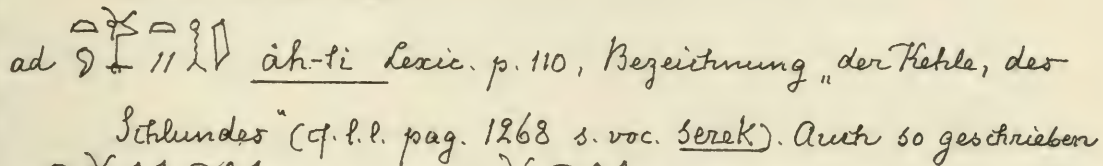 ad āh-ti Lexic. p. 110, Bezeichnung „der Kehle, des
Schlundes“ (cf. l. l. pag. 1268 s. voc. serek). Auch so geschrieben